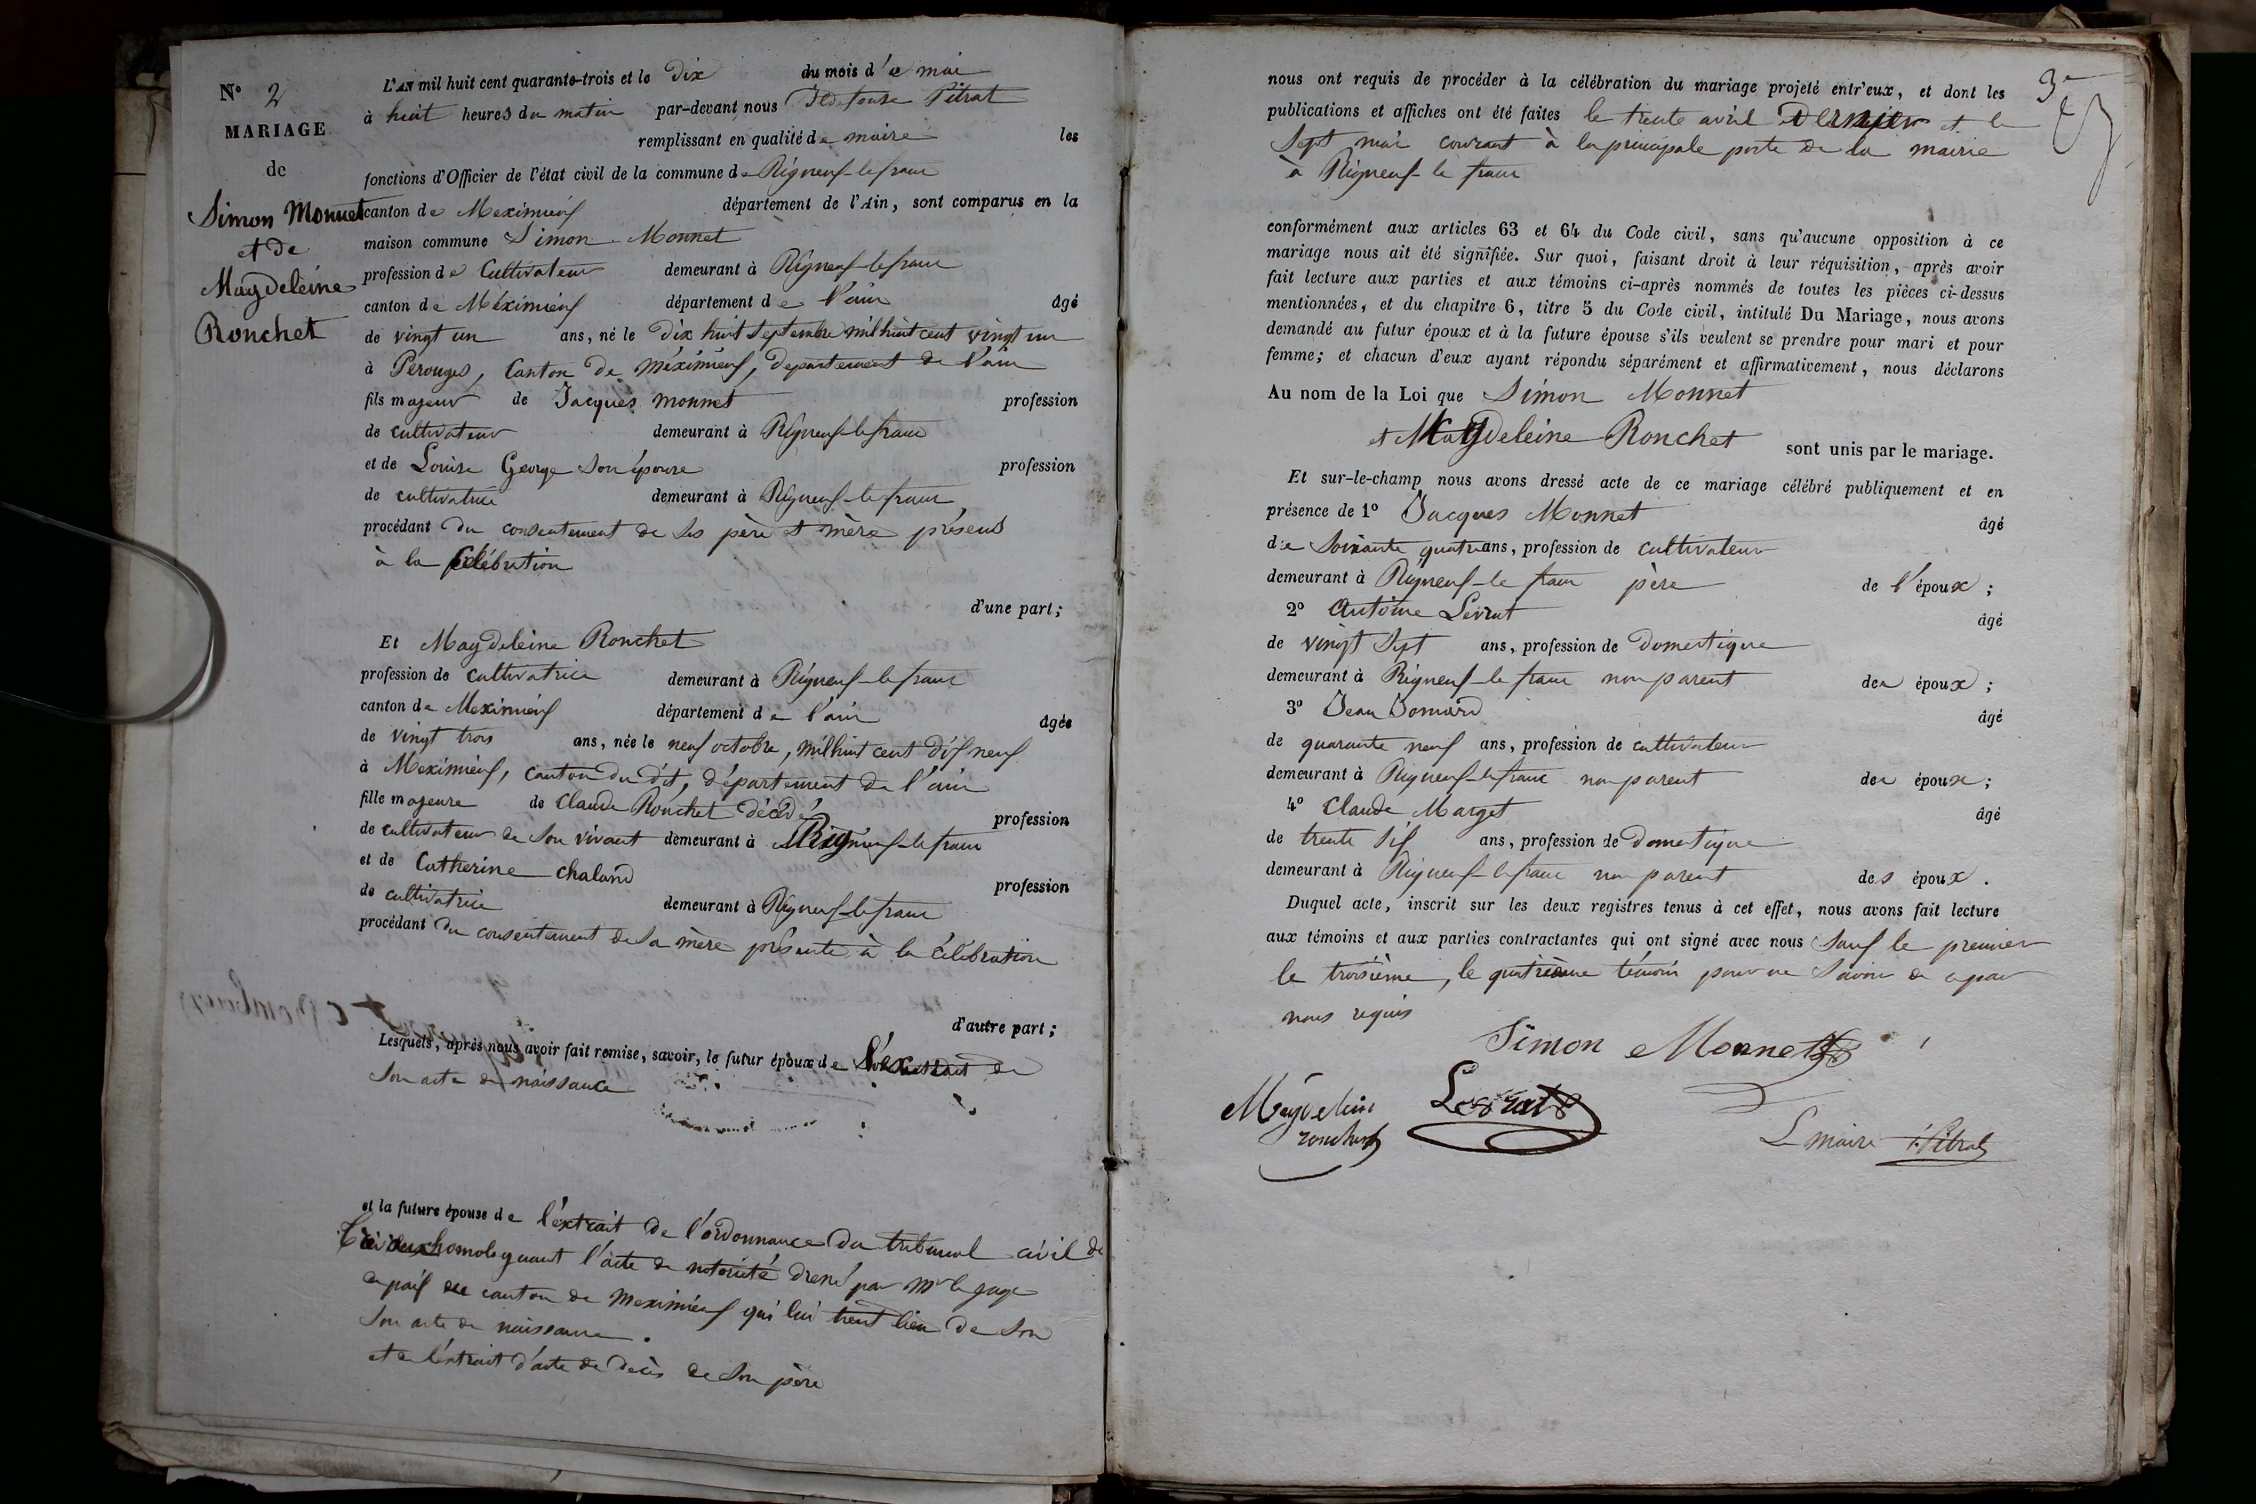 N° 2
MARIAGE
de
Simon Monnet
et de
Magdeleine
Ronchet
L'AN mil huit cent quarante-trois et le dix du mois de mai
à huit heures du matin par-devant nous Ildefonse Pitrat
remplissant en qualité de maire les
fonctions d'Officier de l'état civil de la commune de Rigneux-le-franc
canton de Meximieux département de l'Ain, sont comparus en la
maison commune Simon Monnet
profession de Cultivateur demeurant à Rigneux-le franc
canton de Méximieux département de l'ain âgé
de vingt un ans, né le dix huit septembre mil huit cent vingt un
à Pérouges, Canton de Méximieux, département de l'ain
fils majeur de Jacques monnet profession
de cultivateur demeurant à Rigneux-le franc
et de Louise George son épouse profession
de cultivatrice demeurant à Rigneux-le franc
procédant du consentement de ses père et mère présens
à la célébration
d'une part;
Et Magdeleine Ronchet
profession de cultivatrice demeurant à Rigneux-le franc
canton de Meximieux département de l'ain âgée
de vingt trois ans, née le neuf octobre, mil huit cent dix neuf
à Meximieux, canton du dit, département de l'ain
fille majeure de Claude Ronchet décédé profession
de cultivateur de son vivant demeurant à Rigneux-le franc
et de Catherine chaland profession
de cultivatrice demeurant à Rigneux-le franc
procédant du consentement de sa mère présente à la célébration
d'autre part;
Lesquels, après nous avoir fait remise, savoir, le futur époux de l'extrait de
son acte de naissance
et la future épouse de l'extrait de l'ordonnance du tribunal civil de
homologuant l'acte de notoriété dressé par Mr le juge
de paix du canton de Meximieux qui lui tient lieu de son
son acte de naissance.
et de l'extrait d'acte de décès de son père
3e
nous ont requis de procéder à la célébration du mariage projeté entr'eux, et dont les
publications et affiches ont été faites le trente avril dernier et le
sept mai courant à la principale porte de la mairie
à Rigneux-le franc
conformément aux articles 63 et 64 du Code civil, sans qu'aucune opposition à ce
mariage nous ait été signifiée. Sur quoi, faisant droit à leur réquisition, après avoir
fait lecture aux parties et aux témoins ci-après nommés de toutes les pièces ci-dessus
mentionnées, et du chapitre 6, titre 5 du Code civil, intitulé Du Mariage, nous avons
demandé au futur époux et à la future épouse s'ils veulent se prendre pour mari et pour
femme; et chacun d'eux ayant répondu séparément et affirmativement, nous déclarons
Au nom de la Loi que Simon Monnet
et Magdeleine Ronchet sont unis par le mariage.
Et sur-le-champ nous avons dressé acte de ce mariage célébré publiquement et en
présence de 1° Jacques Monnet âgé
de soixante quatre ans, profession de cultivateur
demeurant à Rigneux-le franc père de l'époux;
2° Antoine Levrat âgé
de vingt sept ans, profession de domestique
demeurant à Rigneux-le franc non parent des époux;
3° Jean Jomard âgé
de quarante neuf ans, profession de cultivateur
demeurant à Rigneux-le franc non parent des époux;
4° Claude Marget âgé
de trente six ans, profession de domestique
demeurant à Rigneux-le franc non parent des époux.
Duquel acte, inscrit sur les deux registres tenus à cet effet, nous avons fait lecture
aux témoins et aux parties contractantes qui ont signé avec nous sauf le premier
le troisième, le quatrième témoin pour ne savoir de ce par
nous requis
Simon Monnet
Magdeleine
ronchet
Levrat
Le maire I. Pitrat